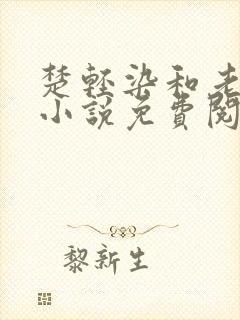 楚輕染和老
小説免費閱
黎新生